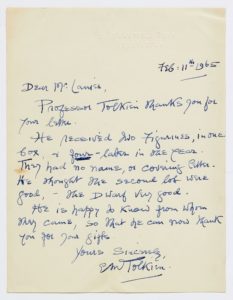 Feb. 11th 1965
Dear Mr.
Professor Tolkien thanks you for
your letter.
He received two figurines, in one
box, & four later in the year.
They had no name, or covering letter.
He thought the second lot were
good, – the Dwarf very good.
He is happy to know from whom
they came, so that he can now thank
you for your gifts
Yours Sincerely,
Tolkien